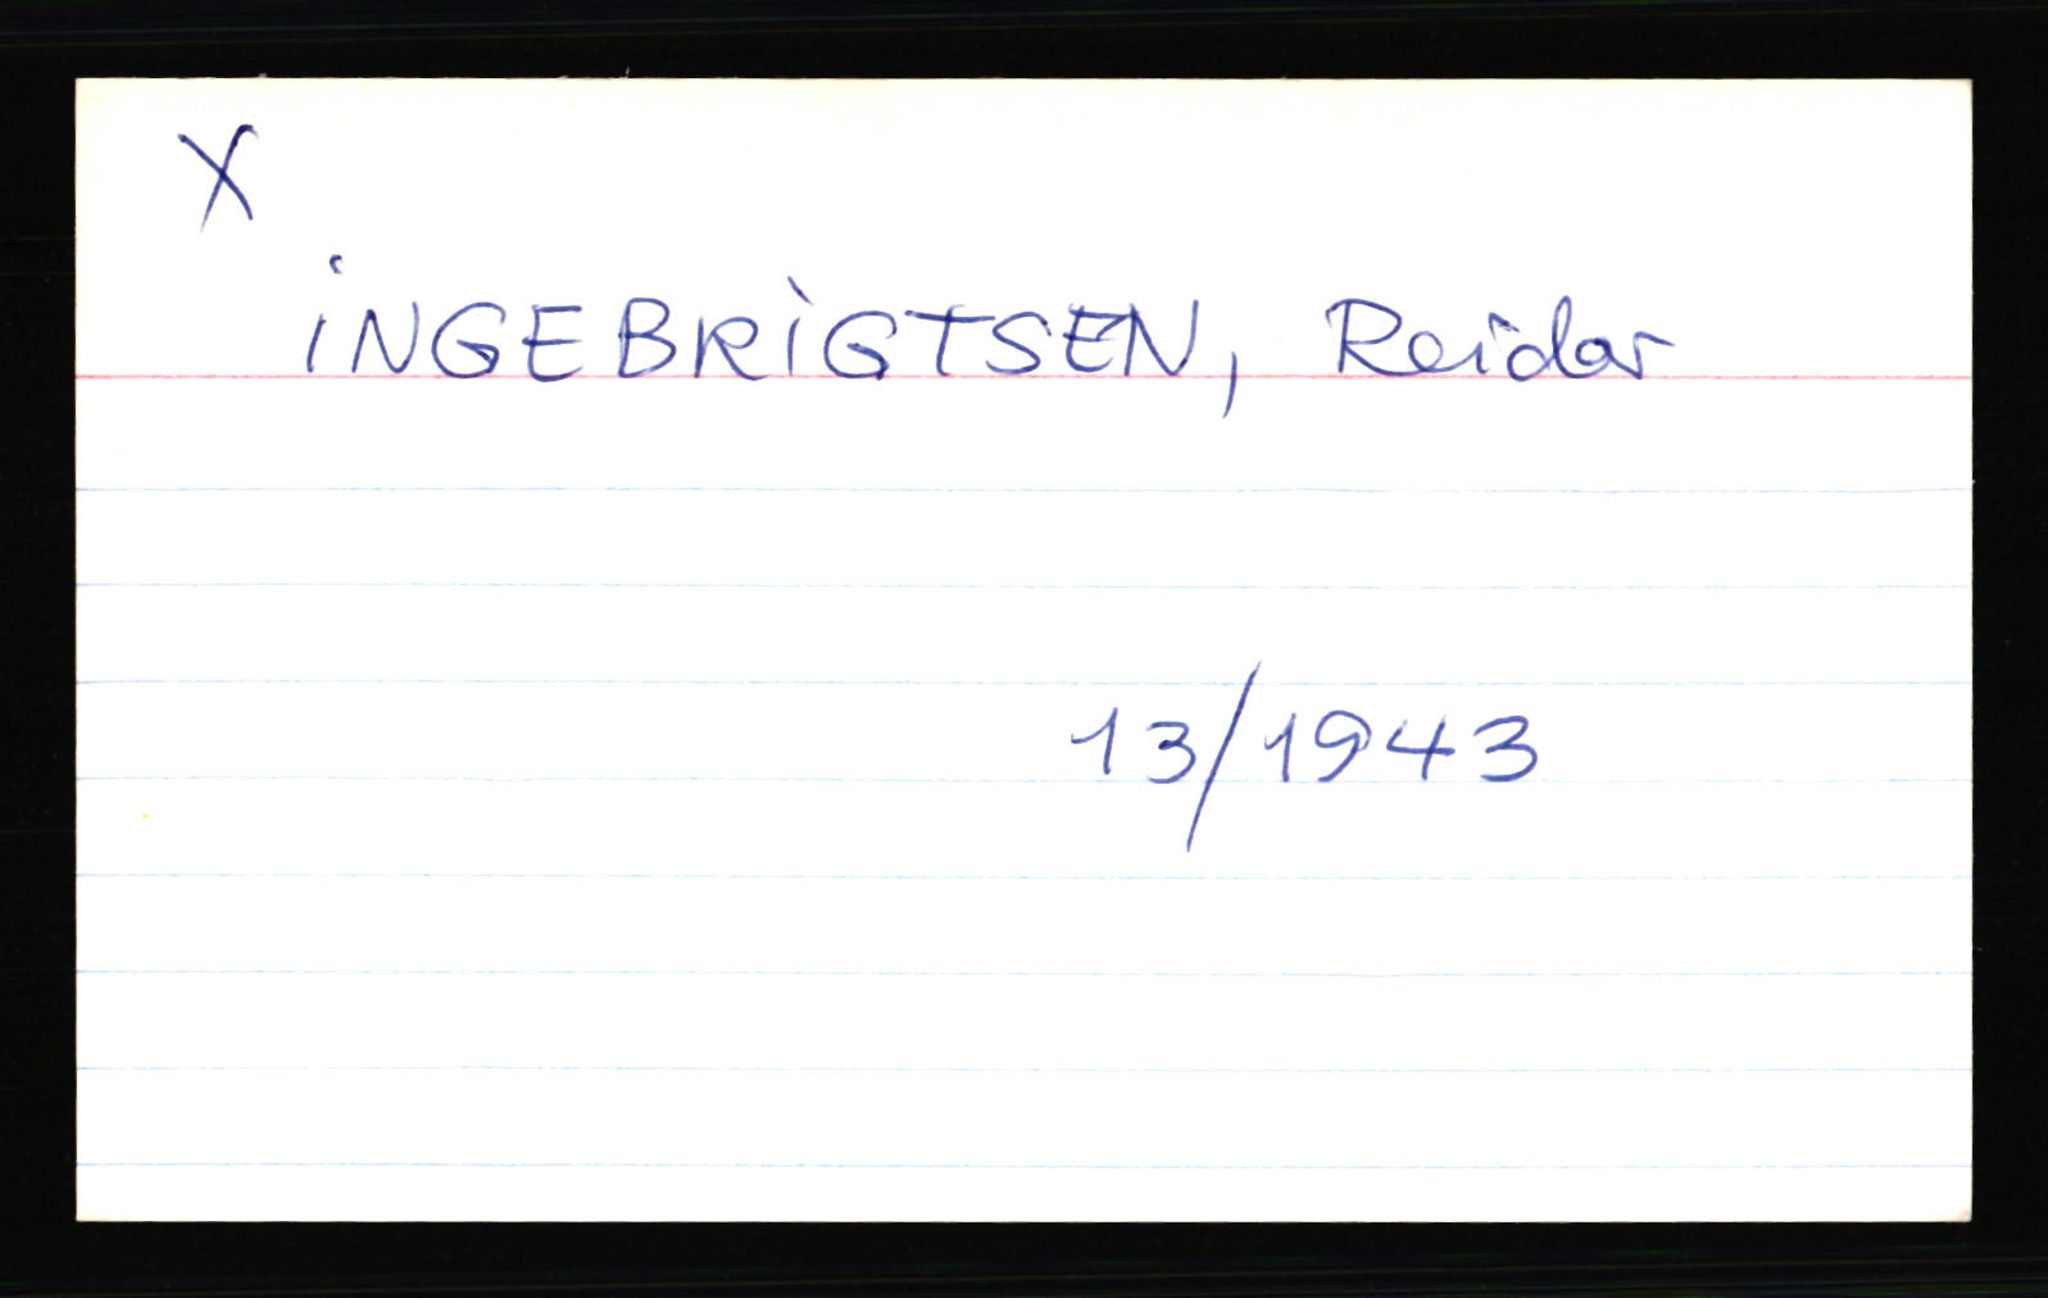 X
INGEBRIGTSEN, Reidar
13/1943